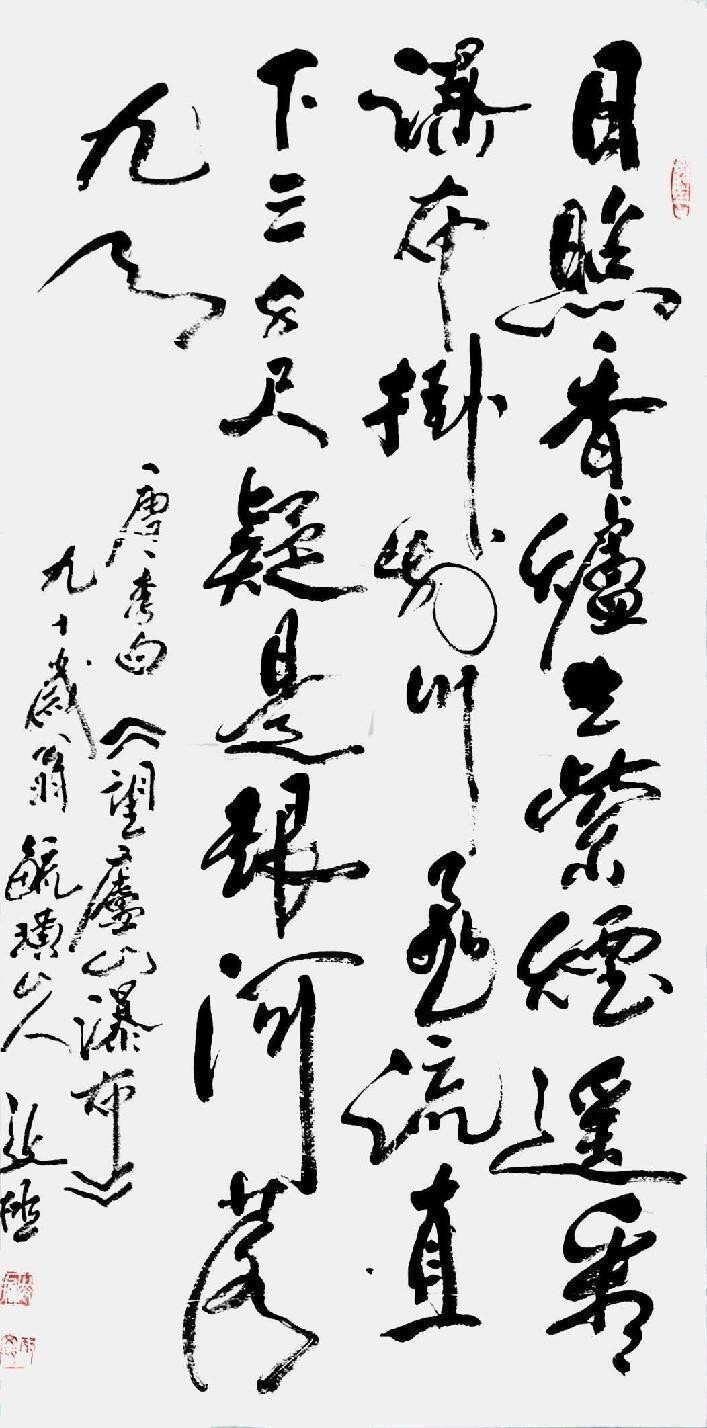 日照香爐生紫煙遙看
瀑布掛前川飛流直
下三千尺疑是銀河落
九天
唐李白《望廬山瀑布》
九十歲翁毓璜山人